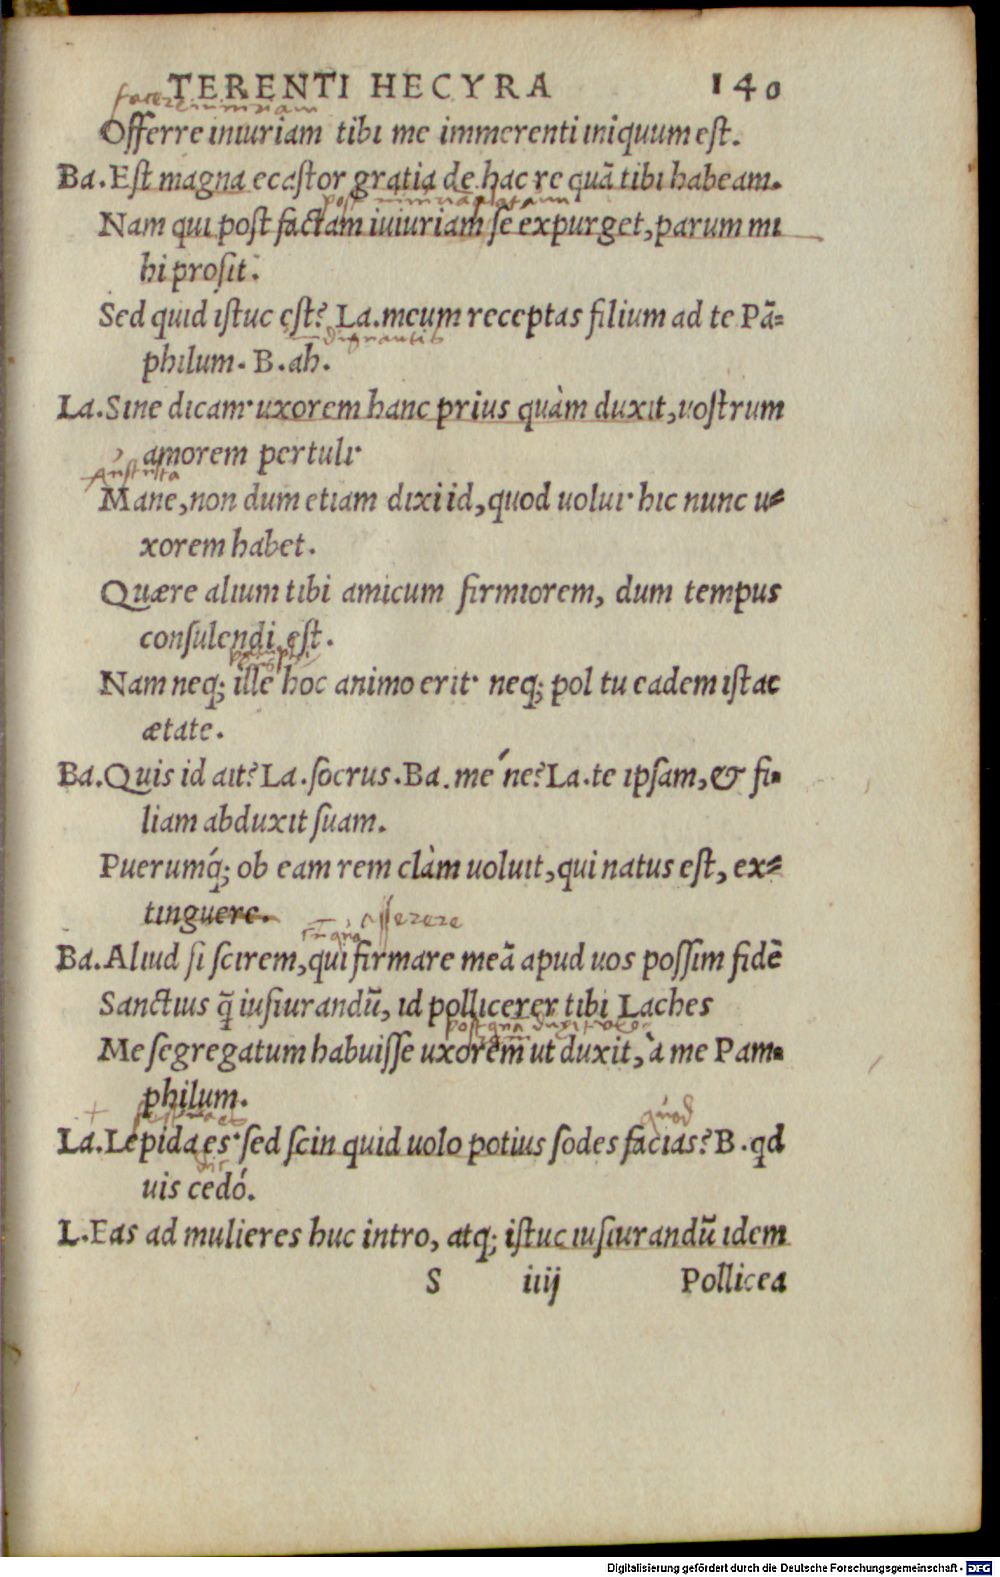 TERENTI HECYRA 140
facere iniuriam
Offerre iniuriam tibi me immerenti iniquum eſt.
Ba. Eſt magna ecaſtor gratia de hac re quã tibi habeam.
post
Nam qui poſt factam iuiuriam ſe expurget, parum mi
hi proſit.
Sed quid iſtuc eſt? La. meum receptas filium ad te Pã=
philum. B. ah.
La. Sine dicam· uxorem hanc prius quàm duxit, uoſtrum
amorem pertuli·
Mane, non dum etiam dixi id, quod uolui· hic nunc u=
xorem habet.
Quære alium tibi amicum firmiorem, dum tempus
conſulendi eſt.
Nam neq; ille hoc animo erit· neq; pol tu eadem iſtac
ætate.
Ba. Quis id ait? La. ſocrus. Ba. mé ne? La. te ipſam, & fi=
liam abduxit ſuam.
Puerumq́; ob eam rem clàm uoluit, qui natus eſt, ex=
tinguere.
aſſerere
Ba. Aliud ſi ſcirem, qui firmare meã apud uos poſſim fidẽ
Sanctius q̃ iuſiurandũ, id pollicerer tibi Laches
postqua duxit
Me ſegregatum habuiſſe uxorem ut duxit, à me Pam=
philum.
quod
La. Lepida es· ſed ſcin quid uolo potius ſodes facias? B. qd
dic
uis cedó.
L. Eas ad mulieres huc intro, atq; iſtuc iuſiurandũ idem
S iiij Pollicea
Digitalisierung gefördert durch die Deutsche Forschungsgemeinschaft - DFG